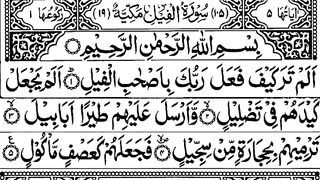 اٰيَاتُهَا ٥ (١٠٥) سُوْرَةُ الْفِيْلِ مَكِّيَّةٌ (١٩) رُكُوْعُهَا ١
بِسْمِ اللّٰهِ الرَّحْمٰنِ الرَّحِيْمِ
اَلَمْ تَرَ كَيْفَ فَعَلَ رَبُّكَ بِاَصْحٰبِ الْفِيْلِ ١ اَلَمْ يَجْعَلْ
كَيْدَهُمْ فِيْ تَضْلِيْلٍ ٢ وَّاَرْسَلَ عَلَيْهِمْ طَيْرًا اَبَابِيْلَ ٣
تَرْمِيْهِمْ بِحِجَارَةٍ مِّنْ سِجِّيْلٍ ٤ فَجَعَلَهُمْ كَعَصْفٍ مَّاْكُوْلٍ ٥